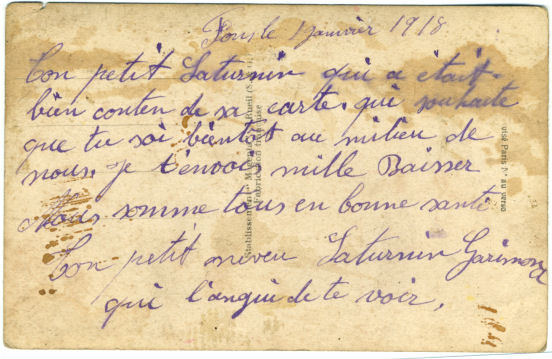 Pons le 1 janvier 1918
Ton petit Saturnin qui a était
bien conten de sa carte. qui souhaite
que tu soi bientôt au milieu de
nous. je t'envoi mille Baisser
Nous somme tous en bonne santé
Ton petit neveu Saturnin Garimond
qui languide te voir.
Fabrication française
visé Paris N. au verso